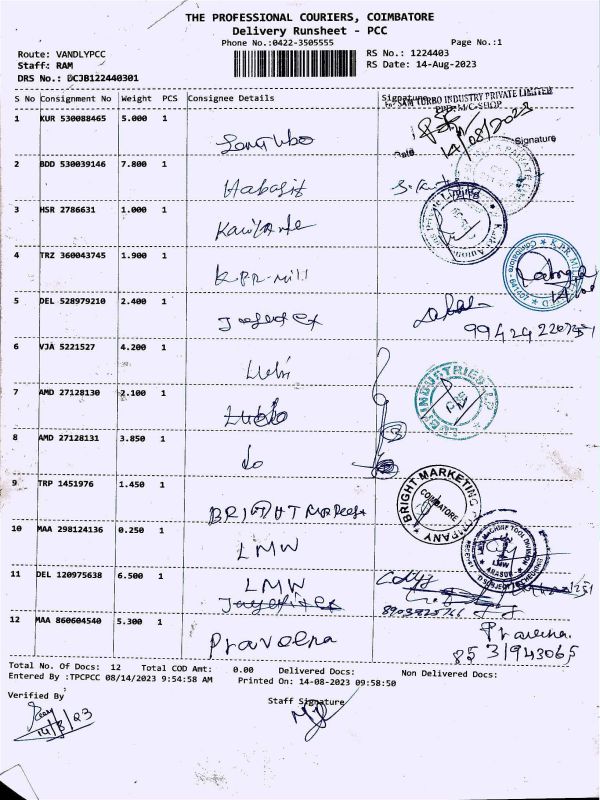 THE PROFESSIONAL COURIERS, COIMBATORE
Delivery Runsheet - PCC
Phone No.:0422-3505555
Page No.:1
Route: VANDLYPCC
RS No.: 1224403
Staff: RAM
RS Date: 14-Aug-2023
DRS No.: DCJB122440301
S No Consignment No Weight PCS Consignee Details Signature
SAM TURBO INDUSTRY PRIVATE LIMITED
1 KUR 530088465 5.000 1
14/08/2023
Signature
2 BDD 530039146 7.800 1
Habasit
3 HSR 2786631 1.000 1
4 TRZ 360043745 1.900 1
KPR-mill
5 DEL 528979210 2.400 1
6 VJA 5221527 4.200 1
Lubi
7 AMD 27128130 2.100 1
LUBI INDUSTRIES
8 AMD 27128131 3.850 1
do
9 TRP 1451976 1.450 1
BRIGHT MARKETING COMPANY
COIMBATORE
BRIGHT
10 MAA 298124136 0.250 1
LMW
LMW
11 DEL 120975638 6.500 1
LMW
12 MAA 860604540 5.300 1
Praveena
Praveena
8531943065
Total No. Of Docs: 12 Total COD Amt: 0.00 Delivered Docs: Non Delivered Docs:
Entered By :TPCPCC 08/14/2023 9:54:58 AM Printed On: 14-08-2023 09:58:50
Verified By
Staff Signature
14/8/23